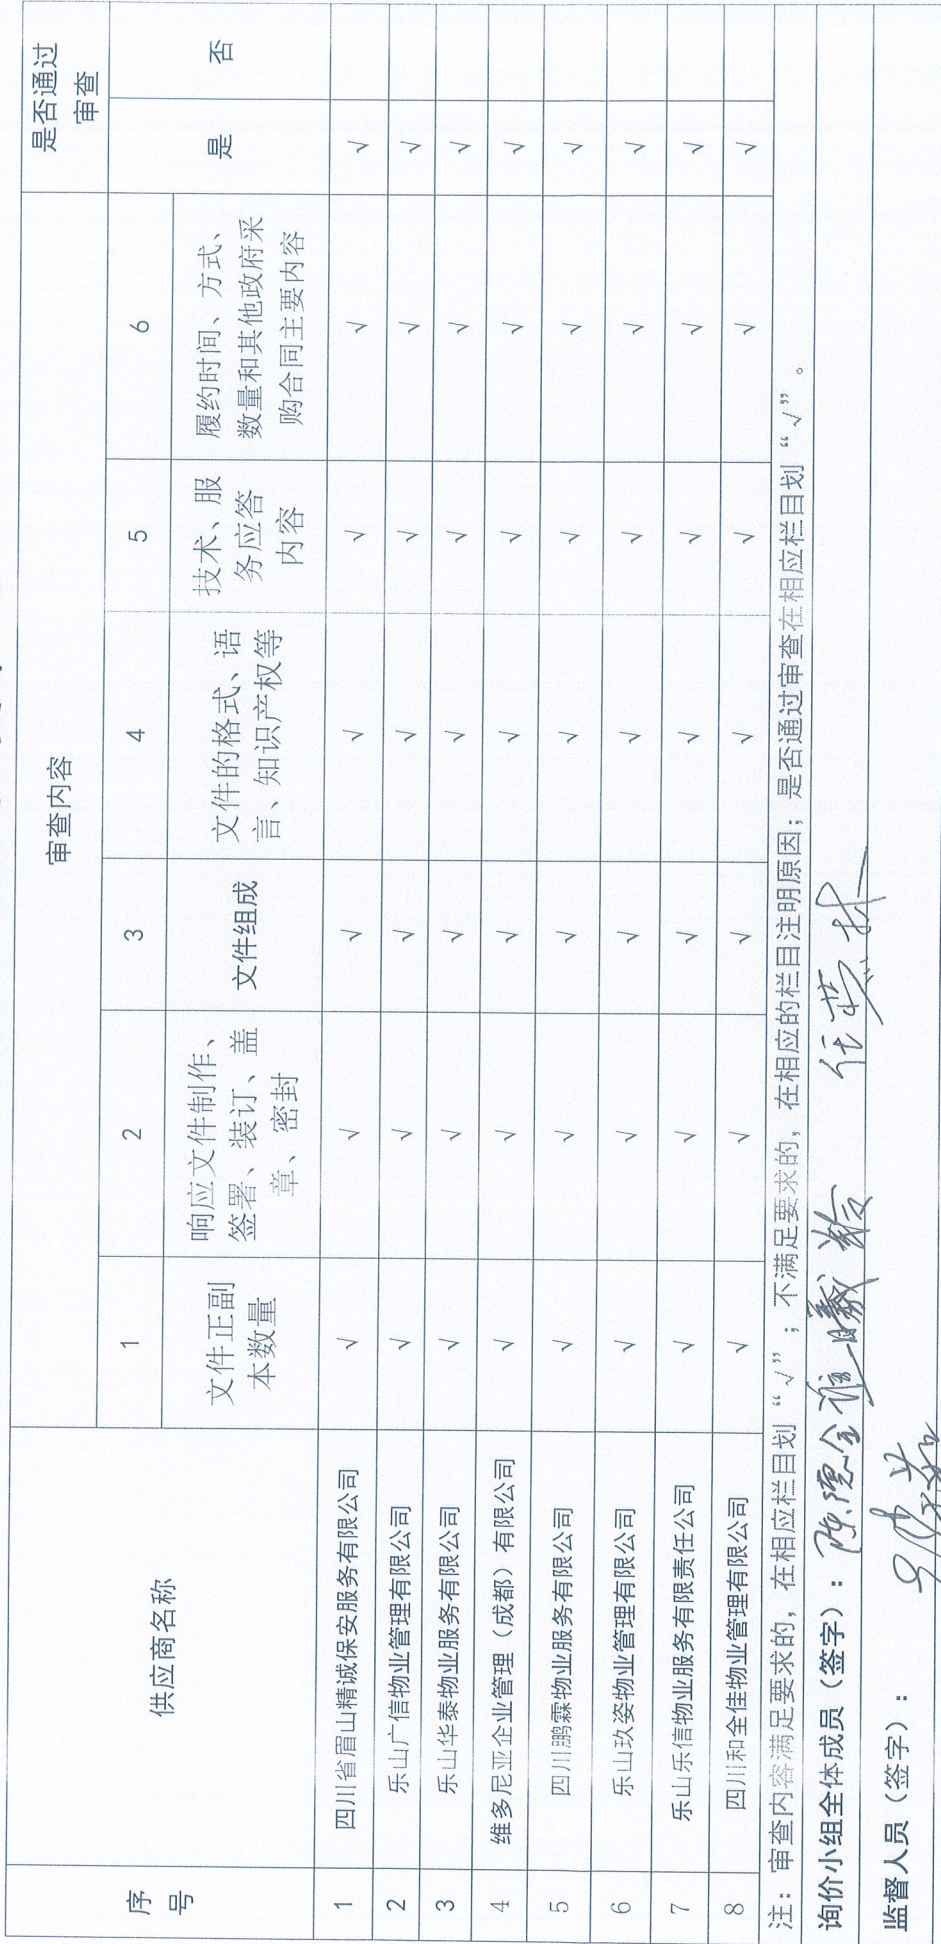 序号 供应商名称 审查内容 是否通过审查
1 2 3 4 5 6 是 否
文件正副本数量 响应文件制作、签署、装订、盖章、密封 文件组成 文件的格式、语言、知识产权等 技术、服务应答内容 履约时间、方式、数量和其他政府采购合同主要内容
1 四川省眉山精诚保安服务有限公司 √ √ √ √ √ √ √
2 乐山广信物业管理有限公司 √ √ √ √ √ √ √
3 乐山华泰物业服务有限公司 √ √ √ √ √ √ √
4 维多尼亚企业管理（成都）有限公司 √ √ √ √ √ √ √
5 四川鹏霖物业服务有限公司 √ √ √ √ √ √ √
6 乐山玖姿物业管理有限公司 √ √ √ √ √ √ √
7 乐山乐信物业服务有限责任公司 √ √ √ √ √ √ √
8 四川和全佳物业管理有限公司 √ √ √ √ √ √ √
注：审查内容满足要求的，在相应栏目划“√”；不满足要求的，在相应的栏目注明原因；是否通过审查在相应栏目划“√”。
询价小组全体成员（签字）：
监督人员（签字）：